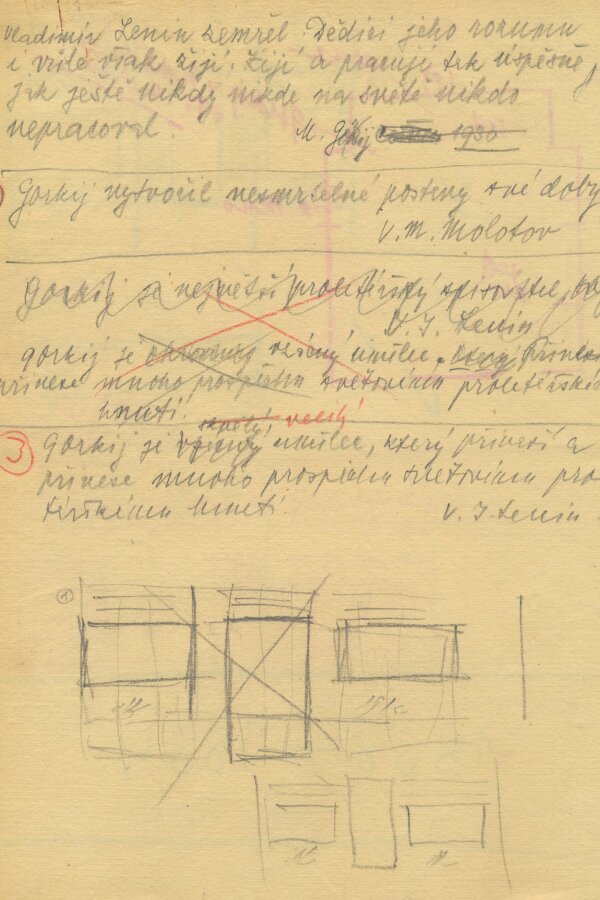 Vladimír Lenin zemřel. Dědici jeho rozumu
i vůle však žijí. Žijí a pracují tak úspěšně,
jak ještě nikdy nikde na světě nikdo
nepracoval.
M. Gorkij 1930
Gorkij vytvořil nesmrtelné postavy své doby
V. M. Molotov
Gorkij je největší proletářský
V. I. Lenin
Gorkij je umělec, který
přinese mnoho prospěchu světovému proletářské
hnutí.
skvělý, velký
3 Gorkij je umělec, který přinesl a
přinese mnoho prospěchu světovému pro
tářskému hnutí.
V. I. Lenin
1